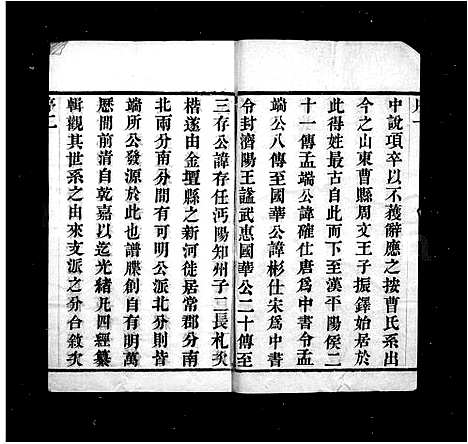 中說項卒以不獲辭應之按曹氏系出
今之山東曹縣周文王子振鐸始居於
此得姓最古自此而下至漢平陽侯二
十一傳孟端公諱確仕唐爲中書令孟
端公八傳至國華公諱彬仕宋爲中書
令封濟陽王諡武惠國華公二十傳至
三存公諱存任沔陽知州子二長札次
楷遂由金壇縣之新河徒居常郡分南
北兩分南分間有可明公派北分則皆
端所公發源於此也譜牒創自有明萬
歷間前清自乾嘉以迄光緒凡四經纂
輯觀其世系之由來支派之分台敘次